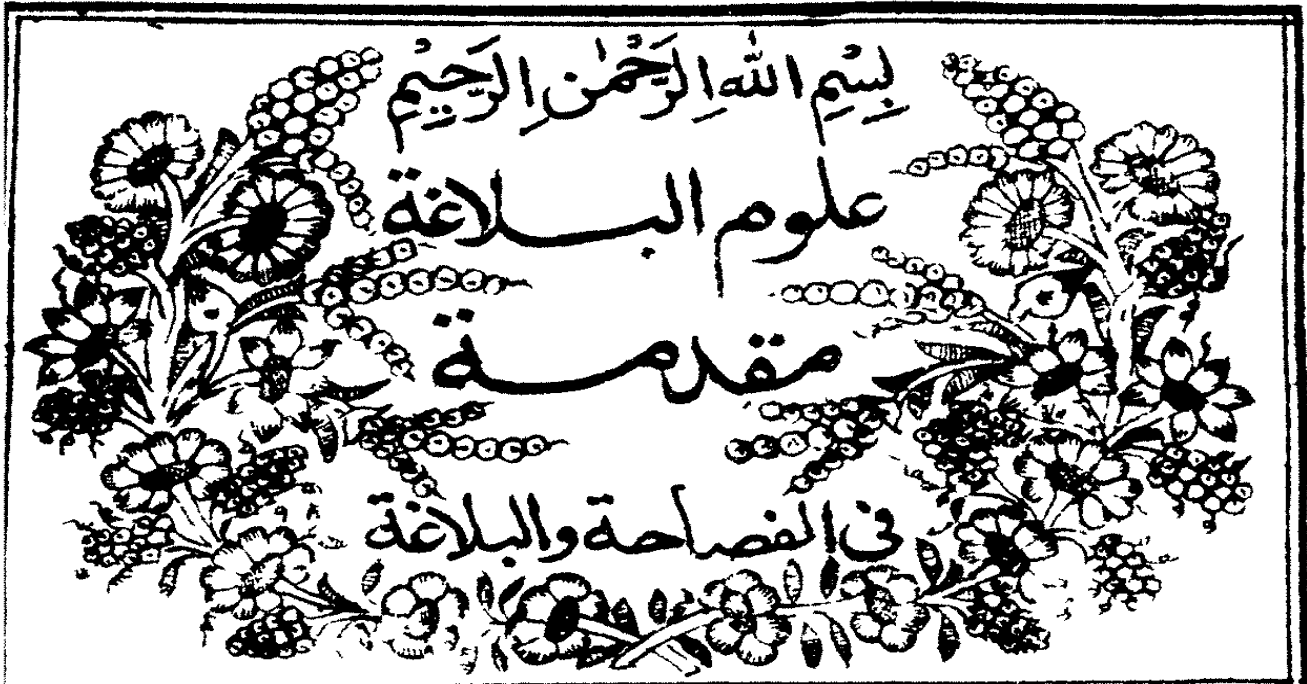 بِسْمِ اللهِ الرَّحْمٰنِ الرَّحِيْمِ
علوم البلاغة
مقدمة
فى الفصاحة والبلاغة